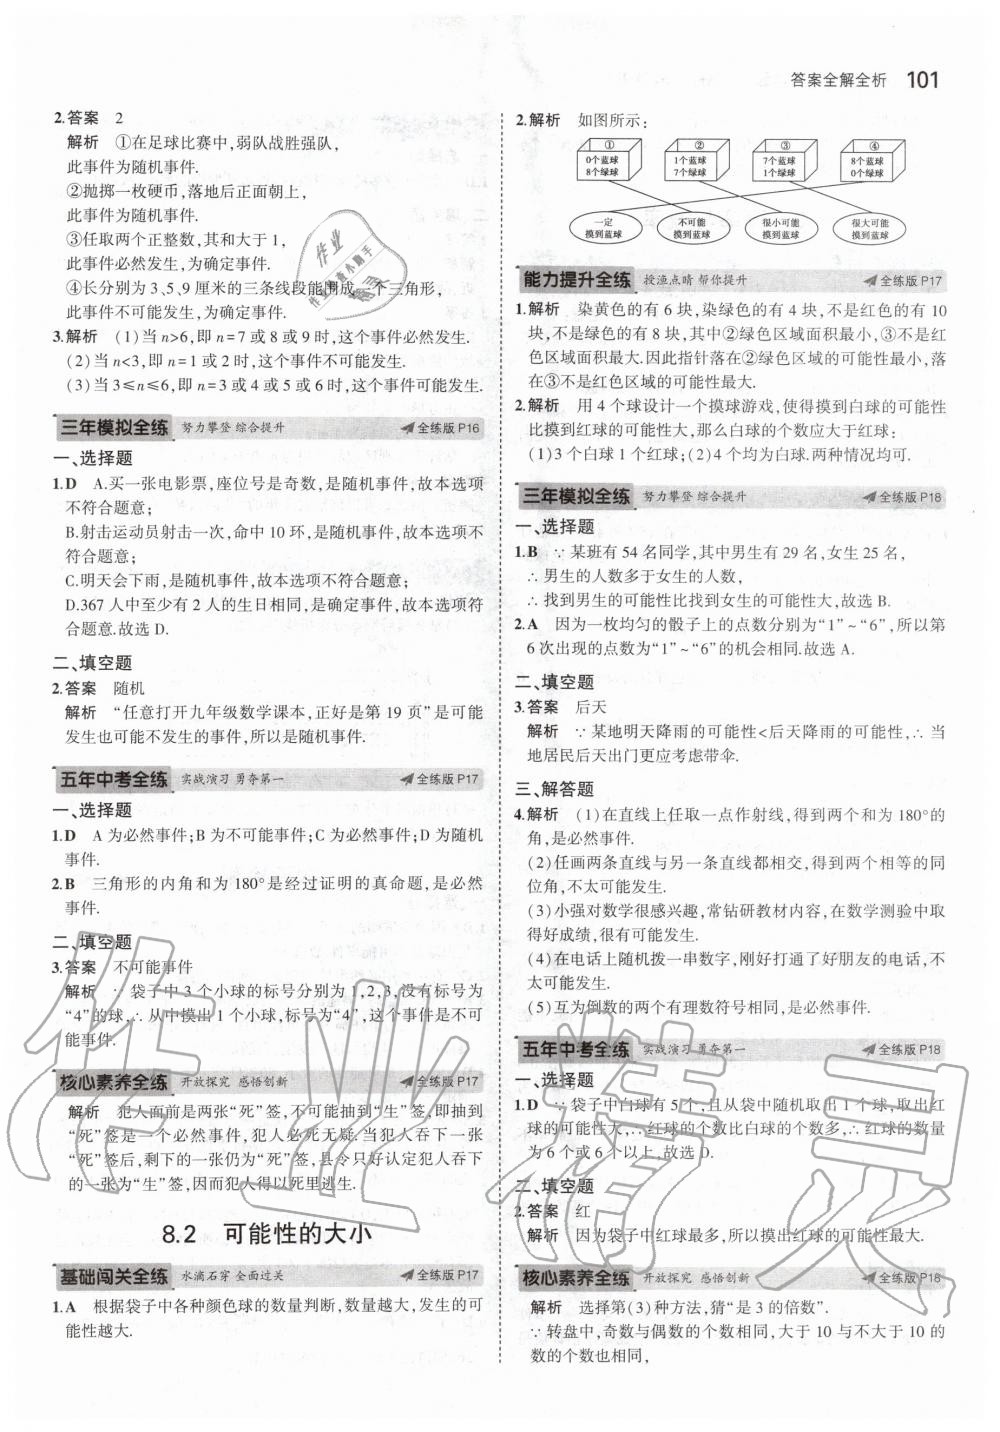 答案全解全析 101
2.答案 2
解析 ①在足球比赛中,弱队战胜强队,
此事件为随机事件.
②抛掷一枚硬币,落地后正面朝上,
此事件为随机事件.
③任取两个正整数,其和大于1,
此事件必然发生,为确定事件.
④长分别为3、5、9厘米的三条线段能围成一个三角形,
此事件不可能发生,为确定事件.
3.解析 (1)当n>6,即n=7或8或9时,这个事件必然发生.
(2)当n<3,即n=1或2时,这个事件不可能发生.
(3)当3≤n≤6,即n=3或4或5或6时,这个事件可能发生.
三年模拟全练 努力攀登 综合提升 全练版P16
一、选择题
1.D A.买一张电影票,座位号是奇数,是随机事件,故本选项
不符合题意;
B.射击运动员射击一次,命中10环,是随机事件,故本选项不
符合题意;
C.明天会下雨,是随机事件,故本选项不符合题意;
D.367人中至少有2人的生日相同,是确定事件,故本选项符
合题意.故选D.
二、填空题
2.答案 随机
解析 “任意打开九年级数学课本,正好是第19页”是可能
发生也可能不发生的事件,所以是随机事件.
五年中考全练 实战演习 勇夺第一 全练版P17
一、选择题
1.D A为必然事件;B为不可能事件;C为必然事件;D为随机
事件.
2.B 三角形的内角和为180°是经过证明的真命题,是必然
事件.
二、填空题
3.答案 不可能事件
解析 ∵袋子中3个小球的标号分别为1,2,3,没有标号为
“4”的球,∴从中摸出1个小球,标号为“4”,这个事件是不可
能事件.
核心素养全练 开放探究 感悟创新 全练版P17
解析 犯人面前是两张“死”签,不可能抽到“生”签,即抽到
“死”签是一个必然事件,犯人必死无疑.当犯人吞下一张
“死”签后,剩下的一张仍为“死”签,县令只好认定犯人吞下
一张为“生”签,因而犯人得以死里逃生.
8.2 可能性的大小
基础闯关全练 水滴石穿 全面过关 全练版P17
1.A 根据袋子中各种颜色球的数量判断,数量越大,发生的可
能性越大.
2.解析 如图所示:
① ② ③ ④
0个蓝球 1个蓝球 7个蓝球 8个蓝球
8个绿球 7个绿球 1个绿球 0个绿球
一定 不可能 很小可能 很大可能
摸到蓝球 摸到蓝球 摸到蓝球 摸到蓝球
能力提升全练 授渔点睛 帮你提升 全练版P17
1.解析 染黄色的有6块,染绿色的有4块,不是红色的有10
块,不是绿色的有8块,其中②绿色区域面积最小,③不是红
色区域面积最大.因此指针落在②绿色区域的可能性最小,落
在③不是红色区域的可能性最大.
2.解析 用4个球设计一个摸球游戏,使得摸到白球的可能性
比摸到红球的可能性大,那么白球的个数应大于红球:
(1)3个白球1个红球;(2)4个均为白球.两种情况均可.
三年模拟全练 努力攀登 综合提升 全练版P18
一、选择题
1.B ∵某班有54名同学,其中男生有29名,女生25名,
∴男生的人数多于女生的人数,
∴找到男生的可能性比找到女生的可能性大,故选B.
2.A 因为一枚均匀的骰子上的点数分别为“1”~“6”,所以第
6次出现的点数为“1”~“6”的机会相同.故选A.
二、填空题
3.答案 后天
解析 ∵某地明天降雨的可能性<后天降雨的可能性,∴当
地居民后天出门更应考虑带伞.
三、解答题
4.解析 (1)在直线上任取一点作射线,得到两个和为180°的
角,是必然事件.
(2)任画两条直线与另一条直线都相交,得到两个相等的同
位角,不太可能发生.
(3)小强对数学很感兴趣,常钻研教材内容,在数学测验中取
得好成绩,很有可能发生.
(4)在电话上随机拨一串数字,刚好打通了好朋友的电话,不
太可能发生.
(5)互为倒数的两个有理数符号相同,是必然事件.
五年中考全练 实战演习 勇夺第一 全练版P18
一、选择题
1.D ∵袋子中白球有5个,且从袋中随机取出1个球,取出红
球的可能性大,∴红球的个数比白球的个数多,∴红球的数量
为6个或6个以上.故选D.
二、填空题
2.答案 红
解析 因为袋子中红球最多,所以摸出红球的可能性最大.
核心素养全练 开放探究 感悟创新 全练版P18
解析 选择第(3)种方法,猜“是3的倍数”.
∵转盘中,奇数与偶数的个数相同,大于10与不大于10的
数的个数也相同,
作业精灵